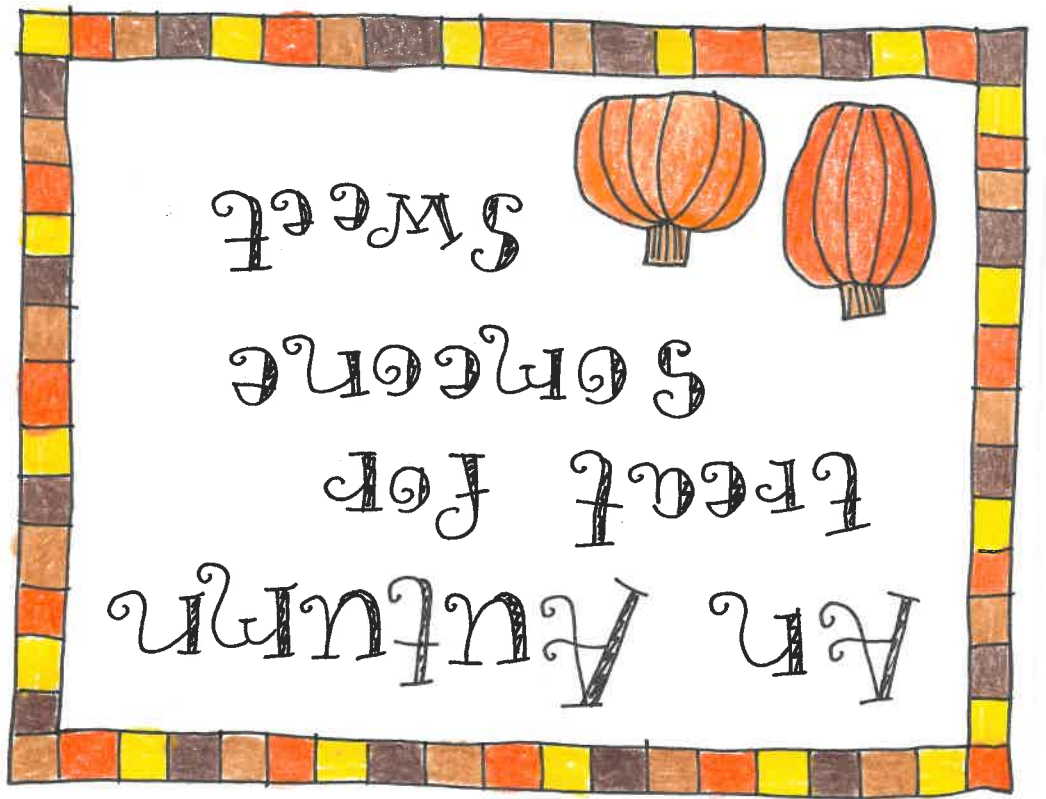 An Autumn
treat for
someone
sweet